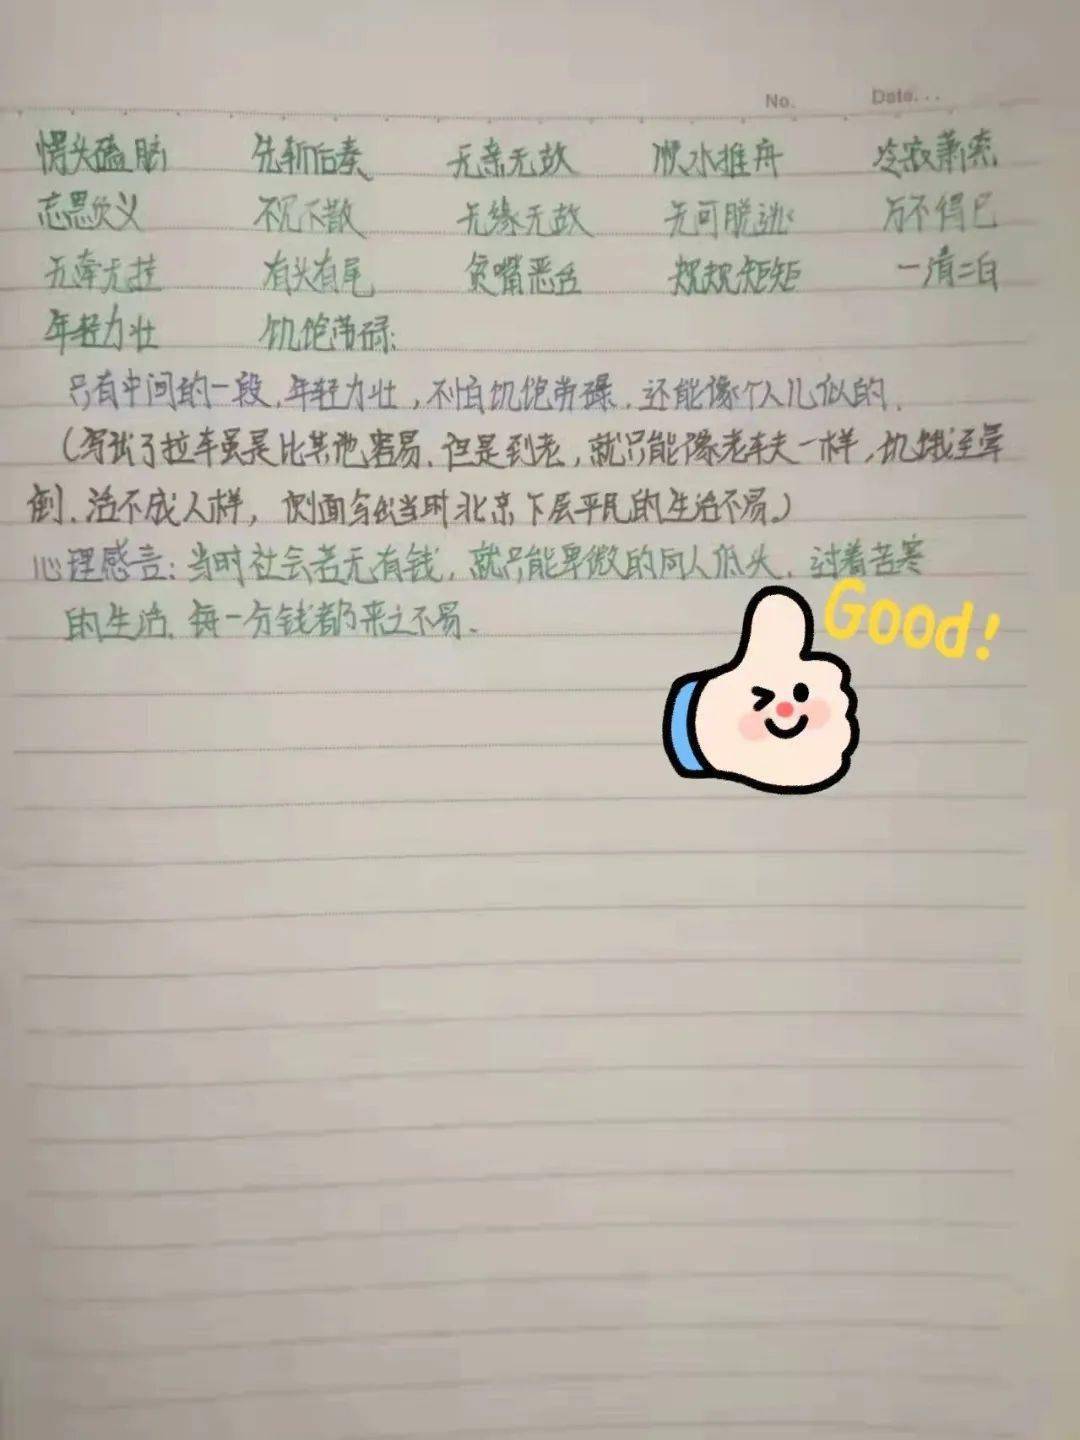 No. Date...
愣头磕脑 先斩后奏 无亲无故 顺水推舟 冷寂萧索
忘恩负义 不见不散 无缘无故 无可脱逃 万不得已
无牵无挂 有头有尾 贫嘴恶舌 规规矩矩 一清二白
年轻力壮 饥饱劳碌:
只有中间的一段,年轻力壮,不怕饥饱劳碌,还能像个人儿似的.
(写出了拉车虽是比其他容易,但是到老,就只能像老车夫一样,饥饿至晕
倒,活不成人样,侧面写出当时北京下层平民的生活不易。)
心理感言:当时社会若无有钱,就只能卑微的向人低头,过着苦寒
的生活,每一分钱都乃来之不易.
Good!